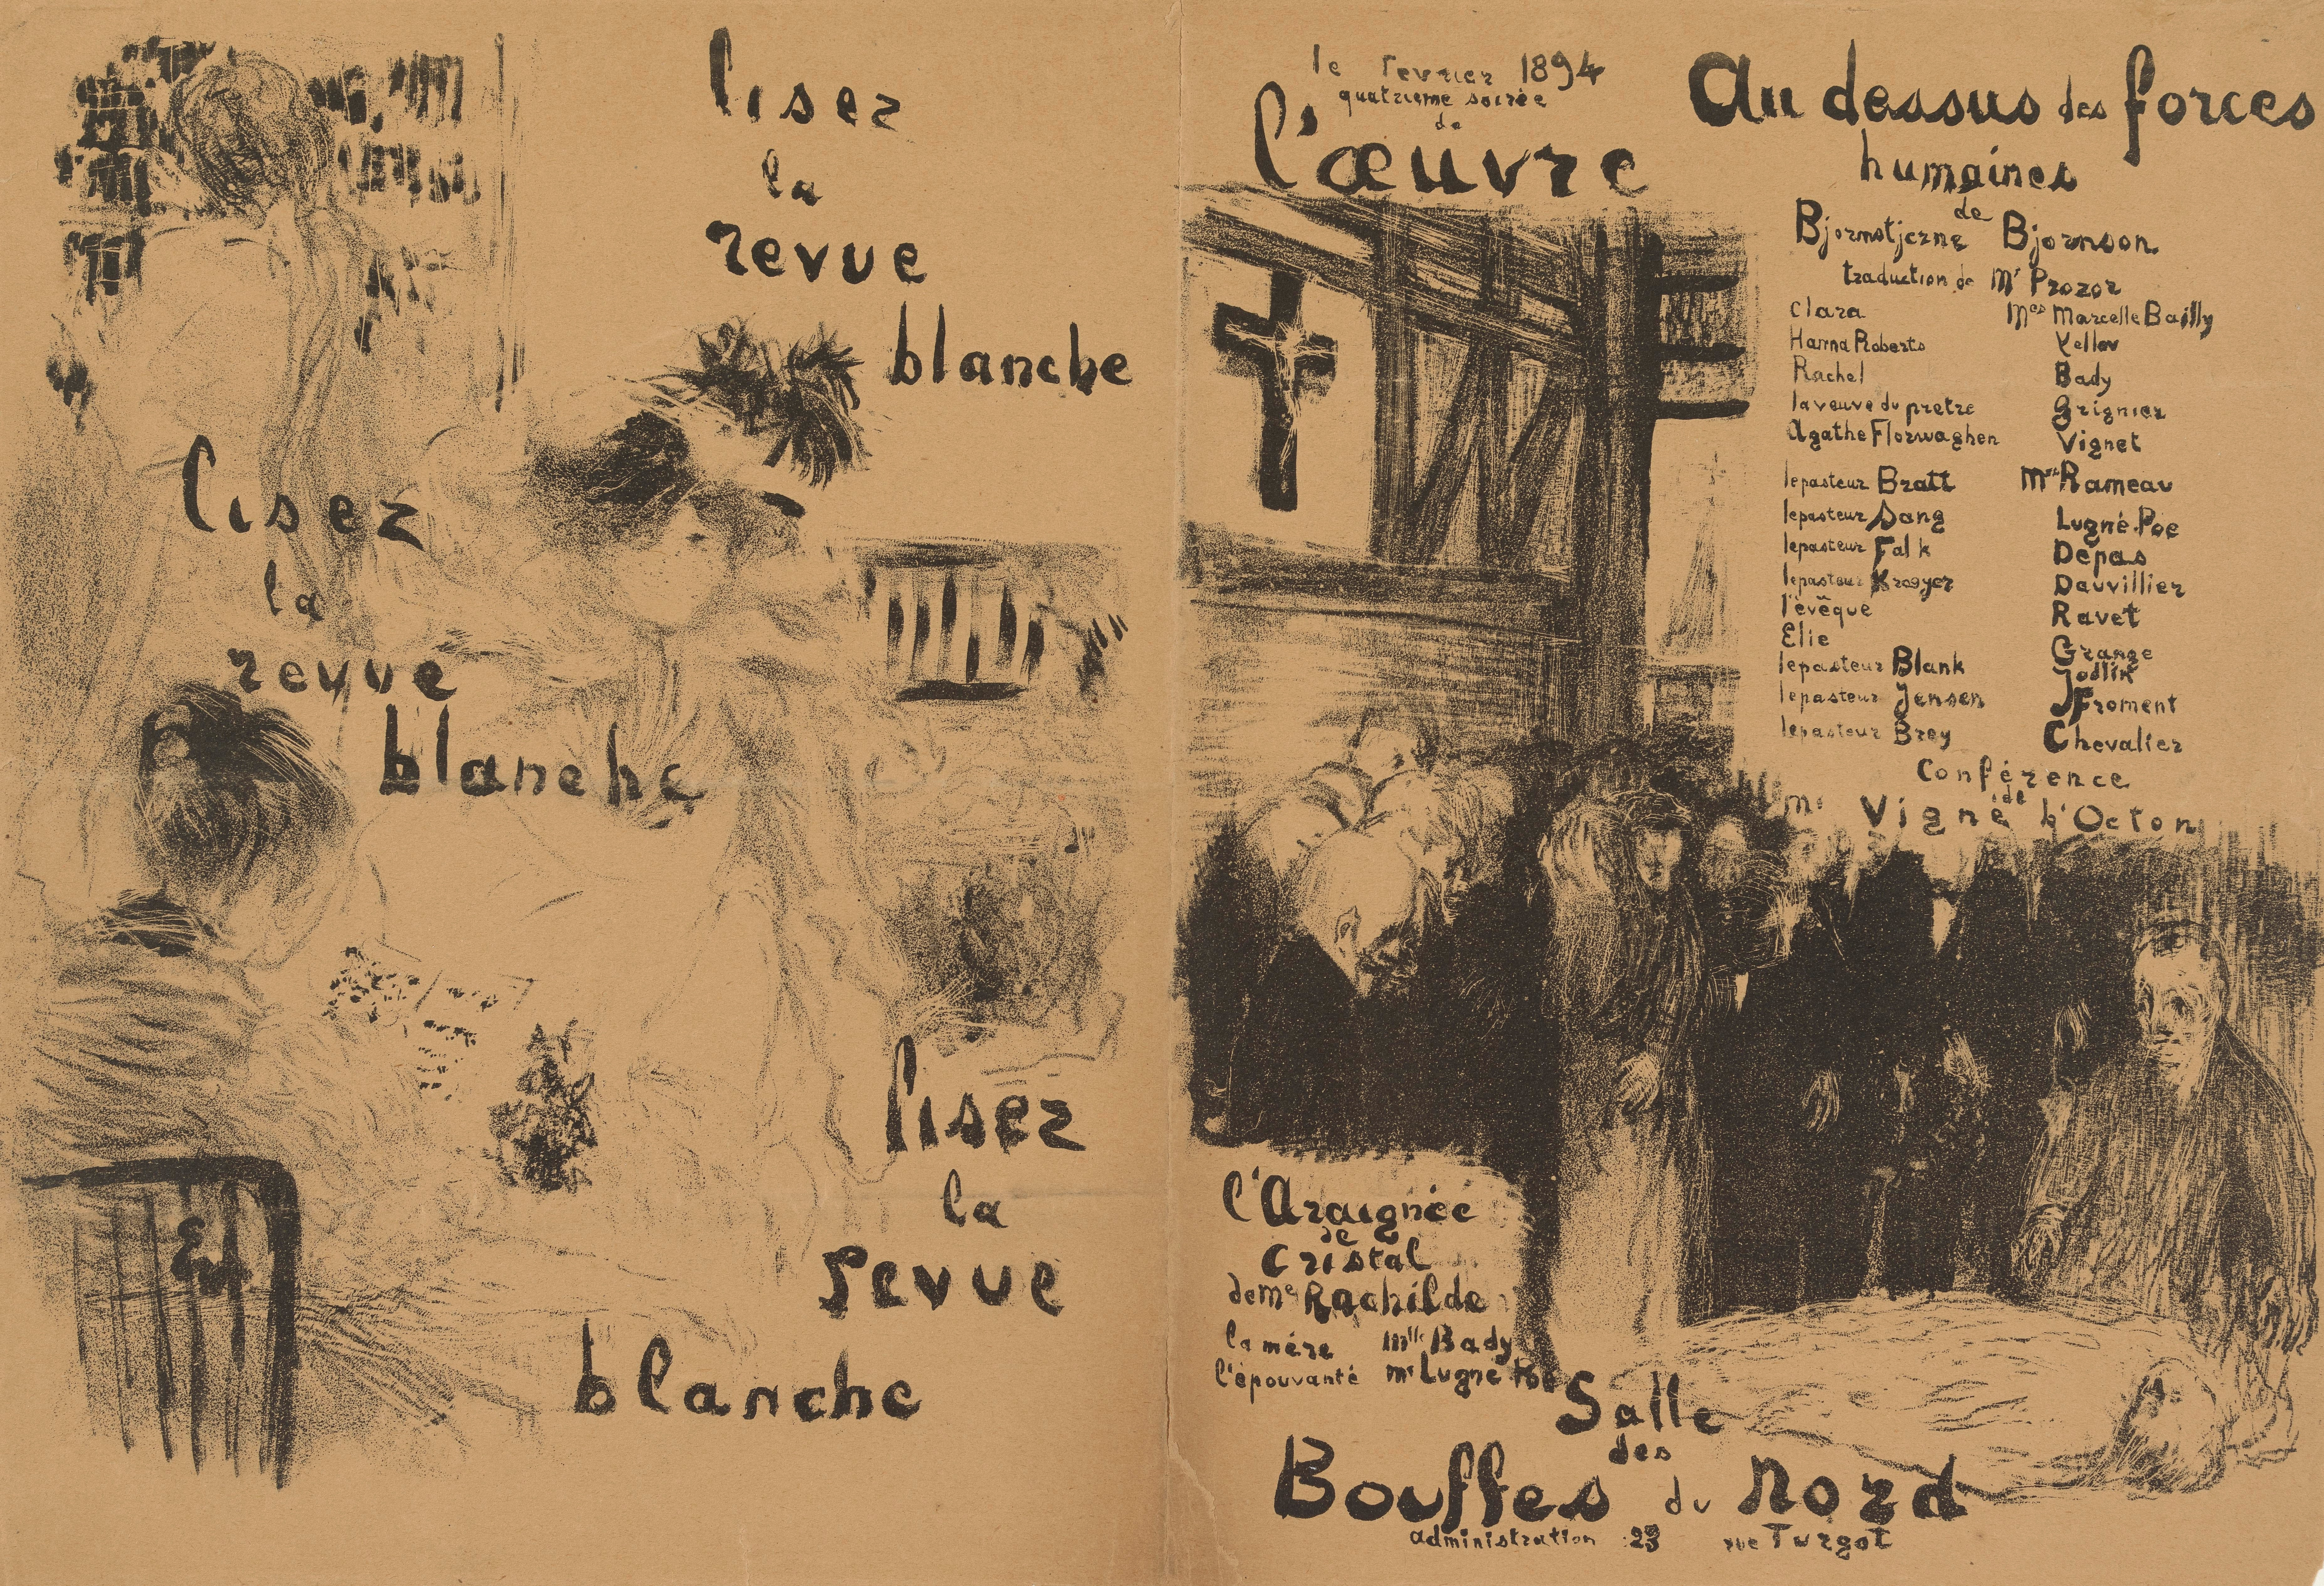 lisez
la
revue
blanche
lisez
la
revue
blanche
lisez
la
revue
blanche
le fevrier 1894
quatrieme soirée
de
l'œuvre
Au dessus des forces
humaines
de
Bjornstjerne Bjornson
traduction de Mr Prozor
Clara Mes Marcelle Bailly
Hanna Roberts
Rachel Bady
la veuve du pretre Grignier
Agathe Florwaghen Vignet
le pasteur Bratt Mrs Rameau
le pasteur Sang Lugné-Poe
le pasteur Falk Depas
le pasteur Kroeyer Dauvillier
l'evêque Ravet
Elie Grange
le pasteur Blank Jodlik
le pasteur Jensen Froment
le pasteur Brey Chevalier
Conférence
de
Mr Vigné d'Octon
l'Araignée
de
Cristal
de Me Rachilde
la mére Mlle Bady
l'épouvanté Mr Lugné Poe
Salle
des
Bouffes du Nord
administration 23 rue Turgot